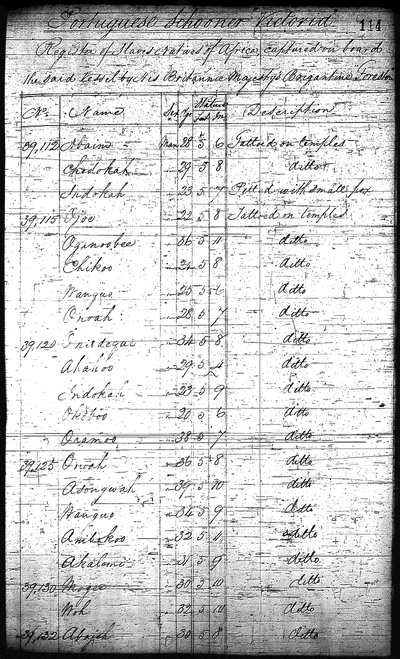 Portuguese Schooner Victoria 114
Register of Slaves Natives of Africa, captured on board
the said Vessel by His Britannic Majesty's Brigantine Forester
No. Name Sex Age Stature Description
feet In
39,112 Man 28 5 6 Tattooed on temples
Chedokah 29 5 8 ditto
Indokah 23 5 7 Pitted with small pox
39,115 Ojoo 22 5 8 Tattooed on temples
Ogunoobee 36 5 11 ditto
Chikoo 5 8 ditto
Wanguo 25 5 6 ditto
Onoah 28 5 7 ditto
39,120 34 5 8 ditto
Ahahoo 29 5 4 ditto
Indokah 23 5 9 ditto
Okeboo 20 5 6 ditto
Oramoo 38 5 7 ditto
39,125 Onoah 36 5 8 ditto
Adongwah 39 5 10 ditto
Wanguo 34 5 9 ditto
32 5 ditto
Akalomi 31 5 9 ditto
39,130 Mogee 30 5 10 ditto
Woh 32 5 10 ditto
39,132 Abajeh 30 5 8 ditto